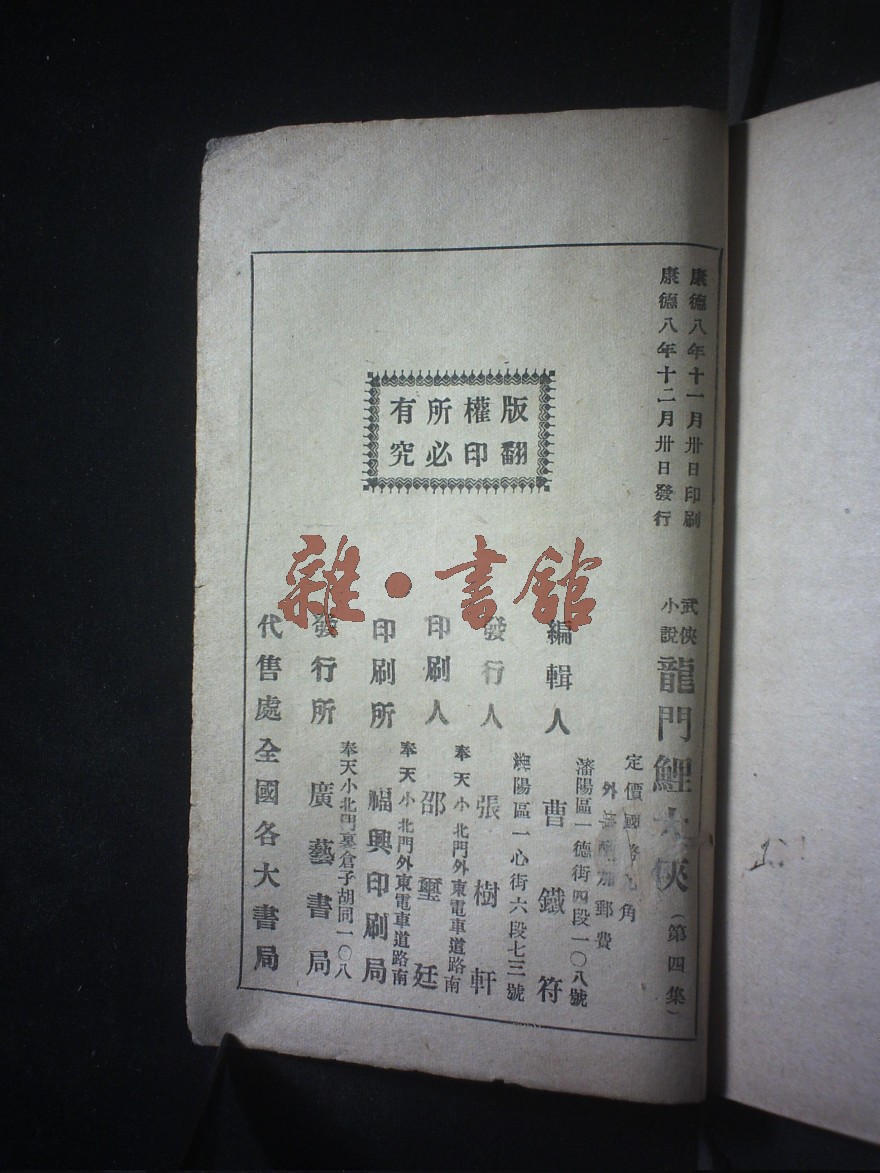 康德八年十一月卅日印刷
康德八年十二月卅日發行
武俠小說 龍門鯉大俠（第四集）
定價國幣 角
外埠 加郵費
版權所有
翻印必究
瀋陽區一德街四段一〇八號
編輯人 曹鐵符
瀋陽區一心街六段七三號
發行人 張樹軒
奉天小北門外東電車道路南
印刷人 邵璽廷
奉天小北門外東電車道路南
印刷所 福興印刷局
奉天小北門裏倉子胡同一〇八
發行所 廣藝書局
代售處全國各大書局
雜·書館